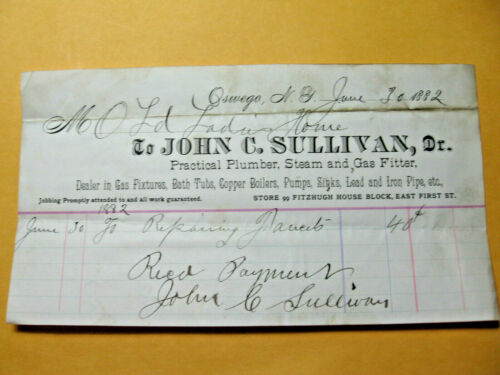 Oswego, N. Y. June 30 1882
M Old Ladies Home
To JOHN C. SULLIVAN, Dr.
Practical Plumber, Steam and Gas Fitter,
Dealer in Gas Fixtures, Bath Tubs, Copper Boilers, Pumps, Sinks, Lead and Iron Pipe, etc.,
Jobbing Promptly attended to and all work guaranteed. STORE 99 FITZHUGH HOUSE BLOCK, EAST FIRST ST.
1882
June 30 To Repairing Faucets 40¢
Recd Payment
John C Sullivan